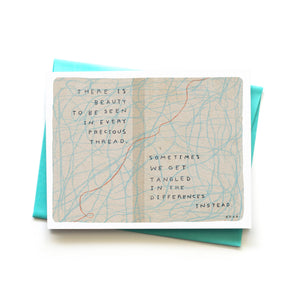 THERE IS
BEAUTY
TO BE SEEN
IN EVERY
PRECIOUS
THREAD.
SOMETIMES
WE GET
TANGLED
IN THE
DIFFERENCES
INSTEAD.